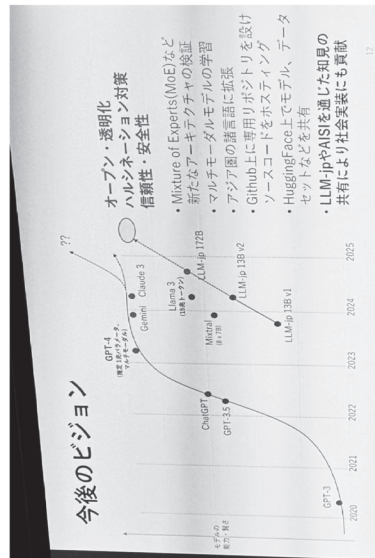 今後のビジョン
モデルの
能力・賢さ
??
GPT-4
(推定1兆パラメータ、
マルチモーダル)
Gemini
Claude 3
Llama 3
(15兆トークン)
LLM-jp 172B
Mixtral
(8 x 7B)
LLM-jp 13B v2
ChatGPT
GPT-3.5
LLM-jp 13B v1
GPT-3
2020
2021
2022
2023
2024
2025
オープン・透明化
ハルシネーション対策
信頼性・安全性
• Mixture of Experts(MoE)など
新たなアーキテクチャの検証
• マルチモーダルモデルの学習
• アジア圏の諸言語に拡張
• Github上に専用リポジトリを設け
ソースコードをホスティング
• HuggingFace上でモデル、データ
セットなどを共有
• LLM-jpやAISIを通じた知見の
共有により社会実装にも貢献
12